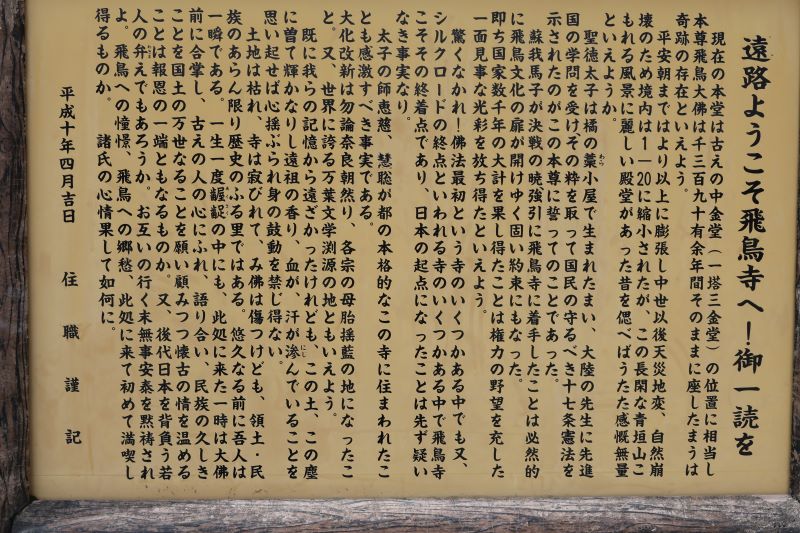 遠路ようこそ飛鳥寺へ！御一読を
現在の本堂は古えの中金堂（一塔三金堂）の位置に相当し
本尊飛鳥大佛は千三百九十有余年間そのままに座したまうは
奇跡の存在といえよう。
平安朝まではより以上に膨張し中世以後天災地変、自然崩
壊のため境内は1―20に縮小されたが、この長閑な青垣山こ
もれる風景に麗しい殿堂があった昔を偲べばうたた感慨無量
といえようか。
聖徳太子は橘の藁小屋で生まれたまい、大陸の先生に先進
国の学問を受けその粋を取って国民の守るべき十七条憲法を
示されたのがこの本尊に誓ってのことであった。
蘇我馬子が決戦の暁強引に飛鳥寺に着手したことは必然的
に飛鳥文化の扉が開けゆく固い約束にもなった。
即ち国家数千年の大計を果し得たことは権力の野望を充した
一面見事な光彩を放ち得たといえよう。
驚くなかれ！佛法最初という寺のいくつかある中でも又、
シルクロードの終点といわれる寺のいくつかある中で飛鳥寺
こそその終着点であり、日本の起点になったことは先ず疑い
なき事実なり。
太子の師恵慈、慧聡が都の本格的なこの寺に住まわれたこ
とも感激すべき事実である。
大化改新は勿論奈良朝然り、各宗の母胎揺籃の地になったこ
と。又、世界に誇る万葉文学渕源の地ともいえよう。
既に我らの記憶から遠ざかったけれども、この土、この塵
に曽て輝かなりし遠祖の香り、血が、汗が滲んでいることを
思い起せば心揺ぶられ身の鼓動を禁じ得ない。
土地は枯れ、寺は寂びれて、み佛は傷つけども、領土・民
族のあらん限り歴史のふる里ではある。悠久なる前に吾人は
一瞬である。一生一度齷齪の中にも、此処に来た一時は大佛
前に合掌し、古えの人の心にふれ、語り合い、民族の久しき
ことを国土の万世なることを願い顧みつつ懐古の情を温める
ことは報恩の一端ともなるものか。又、後代日本を背負う若
人の弁えでもあろうか。お互いの行く末無事安泰を黙祷され
よ。飛鳥への憧憬、飛鳥への郷愁、此処に来て初めて満喫し
得るものか。 諸氏の心情果して如何に。
平成十年四月吉日 住職謹記